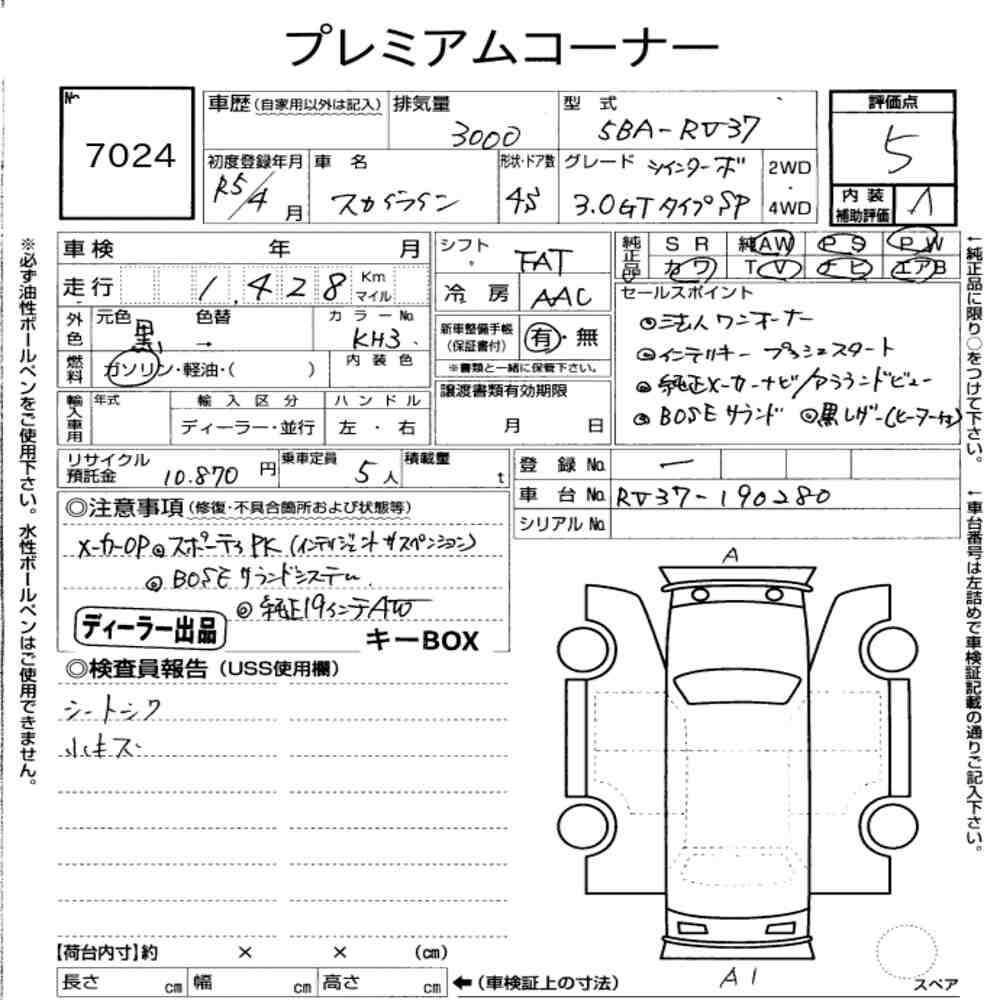 プレミアムコーナー
No.
7024
車歴(自家用以外は記入)
排気量
3000
型 式
5BA-RV37
評価点
5
初度登録年月
R5/4 月
車 名
スカイライン
形状・ドア数
4S
グレード ツインターボ
3.0GTタイプSP
2WD
・
4WD
内 装
補助評価
A
車 検 年 月
シフト
FAT
純正品
S R 純AW P S P W
カワ T V ナビ エアB
走 行 1,428 Km
マイル
冷 房 AAC
セールスポイント
◎法人ワンオーナー
◎インテリキー プッシュスタート
◎純正メーカーナビ/アラウンドビュー
◎BOSEサウンド ◎黒レザー(ヒーター付)
外色
元色 黒 → 色替
カラーNo.
KH3
新車整備手帳
(保証書付)
有・無
※書類と一緒に保管下さい。
燃料
ガソリン・軽油・( )
内 装 色
輸入車用
年式
輸 入 区 分
ディーラー・並行
ハ ン ド ル
左 ・ 右
譲渡書類有効期限
月 日
リサイクル
預託金 10.870 円
乗車定員
5 人
積載量
t
登 録 No. ー
車 台 No. RV37-190280
シリアル No.
◎注意事項(修復・不具合箇所および状態等)
メーカーOP◎スポーティPK(インテリジェントサスペンション)
◎BOSEサウンドシステム
◎純正19インチAW
ディーラー出品
キーBOX
◎検査員報告(USS使用欄)
シートシワ
小キズ
A
A1
スペア
【荷台内寸】約 × × (cm)
長さ cm 幅 cm 高さ cm ←(車検証上の寸法)
※必ず油性ボールペンをご使用下さい。水性ボールペンはご使用できません。
←純正品に限り○をつけて下さい。
←車台番号は左詰めで車検証記載の通りご記入下さい。